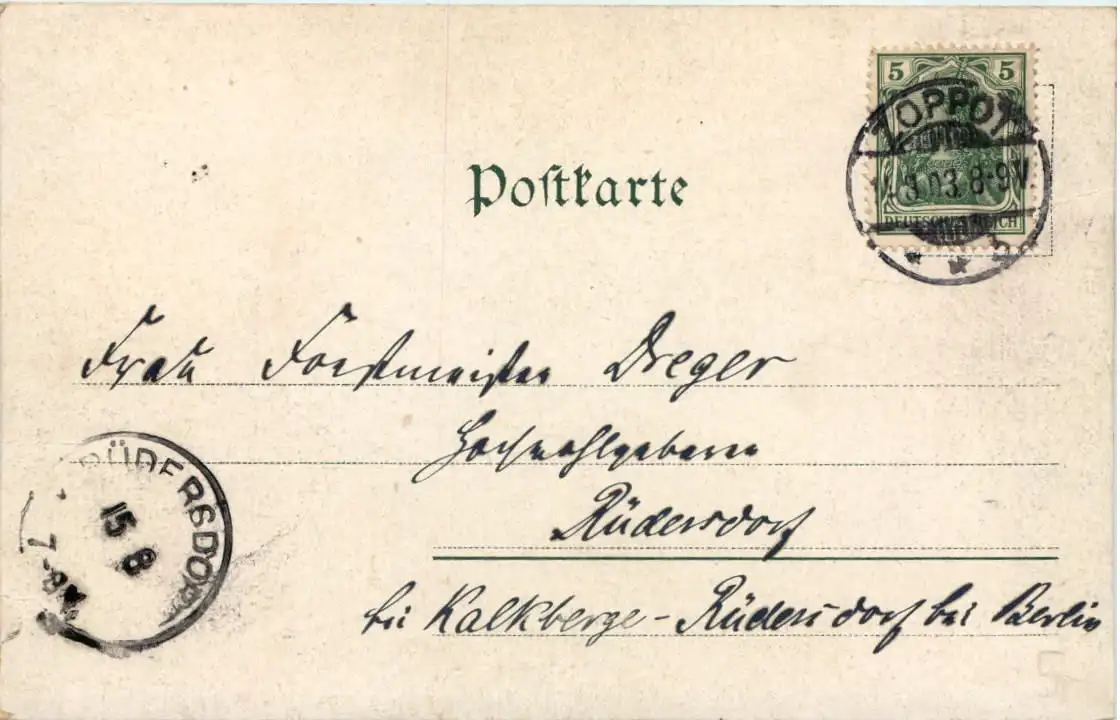 5 5
ZOPPOT
03. 8-9V
DEUTSCHES REICH
Postkarte
Frau Forstmeister Dreger
Hochwohlgeboren
Rüdersdorf
bei Kalkberge-Rüdersdorf bei Berlin
RÜDERSDORF
15 8
7-8V